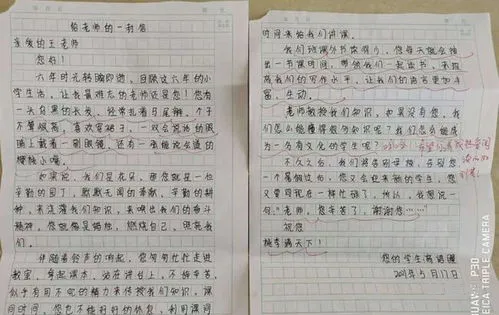 给老师的一封信
亲爱的王老师
您好！
六年时光转瞬即逝，回顾这六年的小
学生活，让我最难忘的老师还是您！您有
一头乌黑的长发，经常扎着马尾辫，个子
不算很高，喜欢穿裙子，一双会说话的眼
睛上戴着一副眼镜，还有一张能说会道的
樱桃小嘴。
如果说，我们是花朵，那您就是一位
辛勤的园丁，默默无闻的奉献，辛勤的耕
种，来浇灌我们知识，来唤出我们的奋斗
精神。您就像是蜡烛，燃烧自己，照亮我
们。
伴随着铃声的响起，您匆匆忙忙走进
教室，拿起课本，站在讲台上，不怕辛苦，
似乎有用不完的精力来传授我们知识，课
间时间，您也不能好好的休息，利用课间
时间来给我们讲课。
我们班课外书
一节课时间，带领我们一起读书，来提
高我们的写作水平，让我们的语言更加丰
富、生动。
老师教授我们知识，如果没有您，我
们怎么能懂得很多知识呢？我们怎么能成
为一名有文化的学生呢？
不久之后，我们将告别母校，在经历
一个暑假过后，您又会迎来新的学生，您
又要同现在一样忙碌了，所以，我想说一
句“老师，您辛苦了，谢谢您……
祝您
桃李满天下！
您的学生
2021年5月17日
HUAWEI P30
LEICA TRIPLE CAMERA